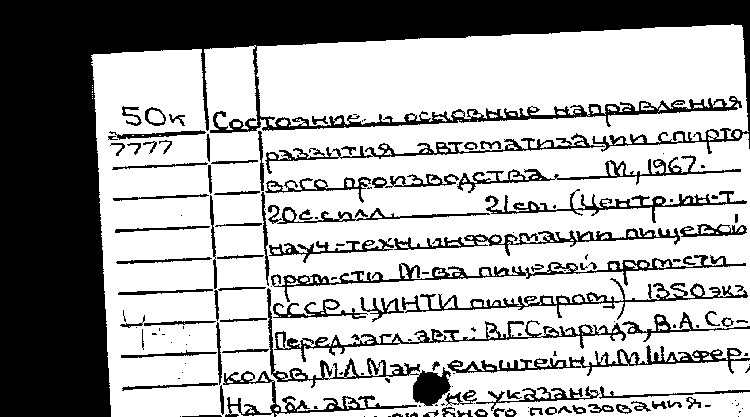 50к Состояние и основные направления
7777 развития автоматизации спирто-
вого производства. М., 1967.
20с.силл. 21см. (Центр.ин-т
науч-техн.информации пищевой
пром-сти М-ва пищевой пром-сти
СССР. ЦИНТИ пищепром). 1350экз
Перед загл.авт.: В.Г.Свирида, В.А.Со-
колов, М.Л.Ман ельштейн, И.М.Шлафер,
На обл. авт. не указаны.
пользования.